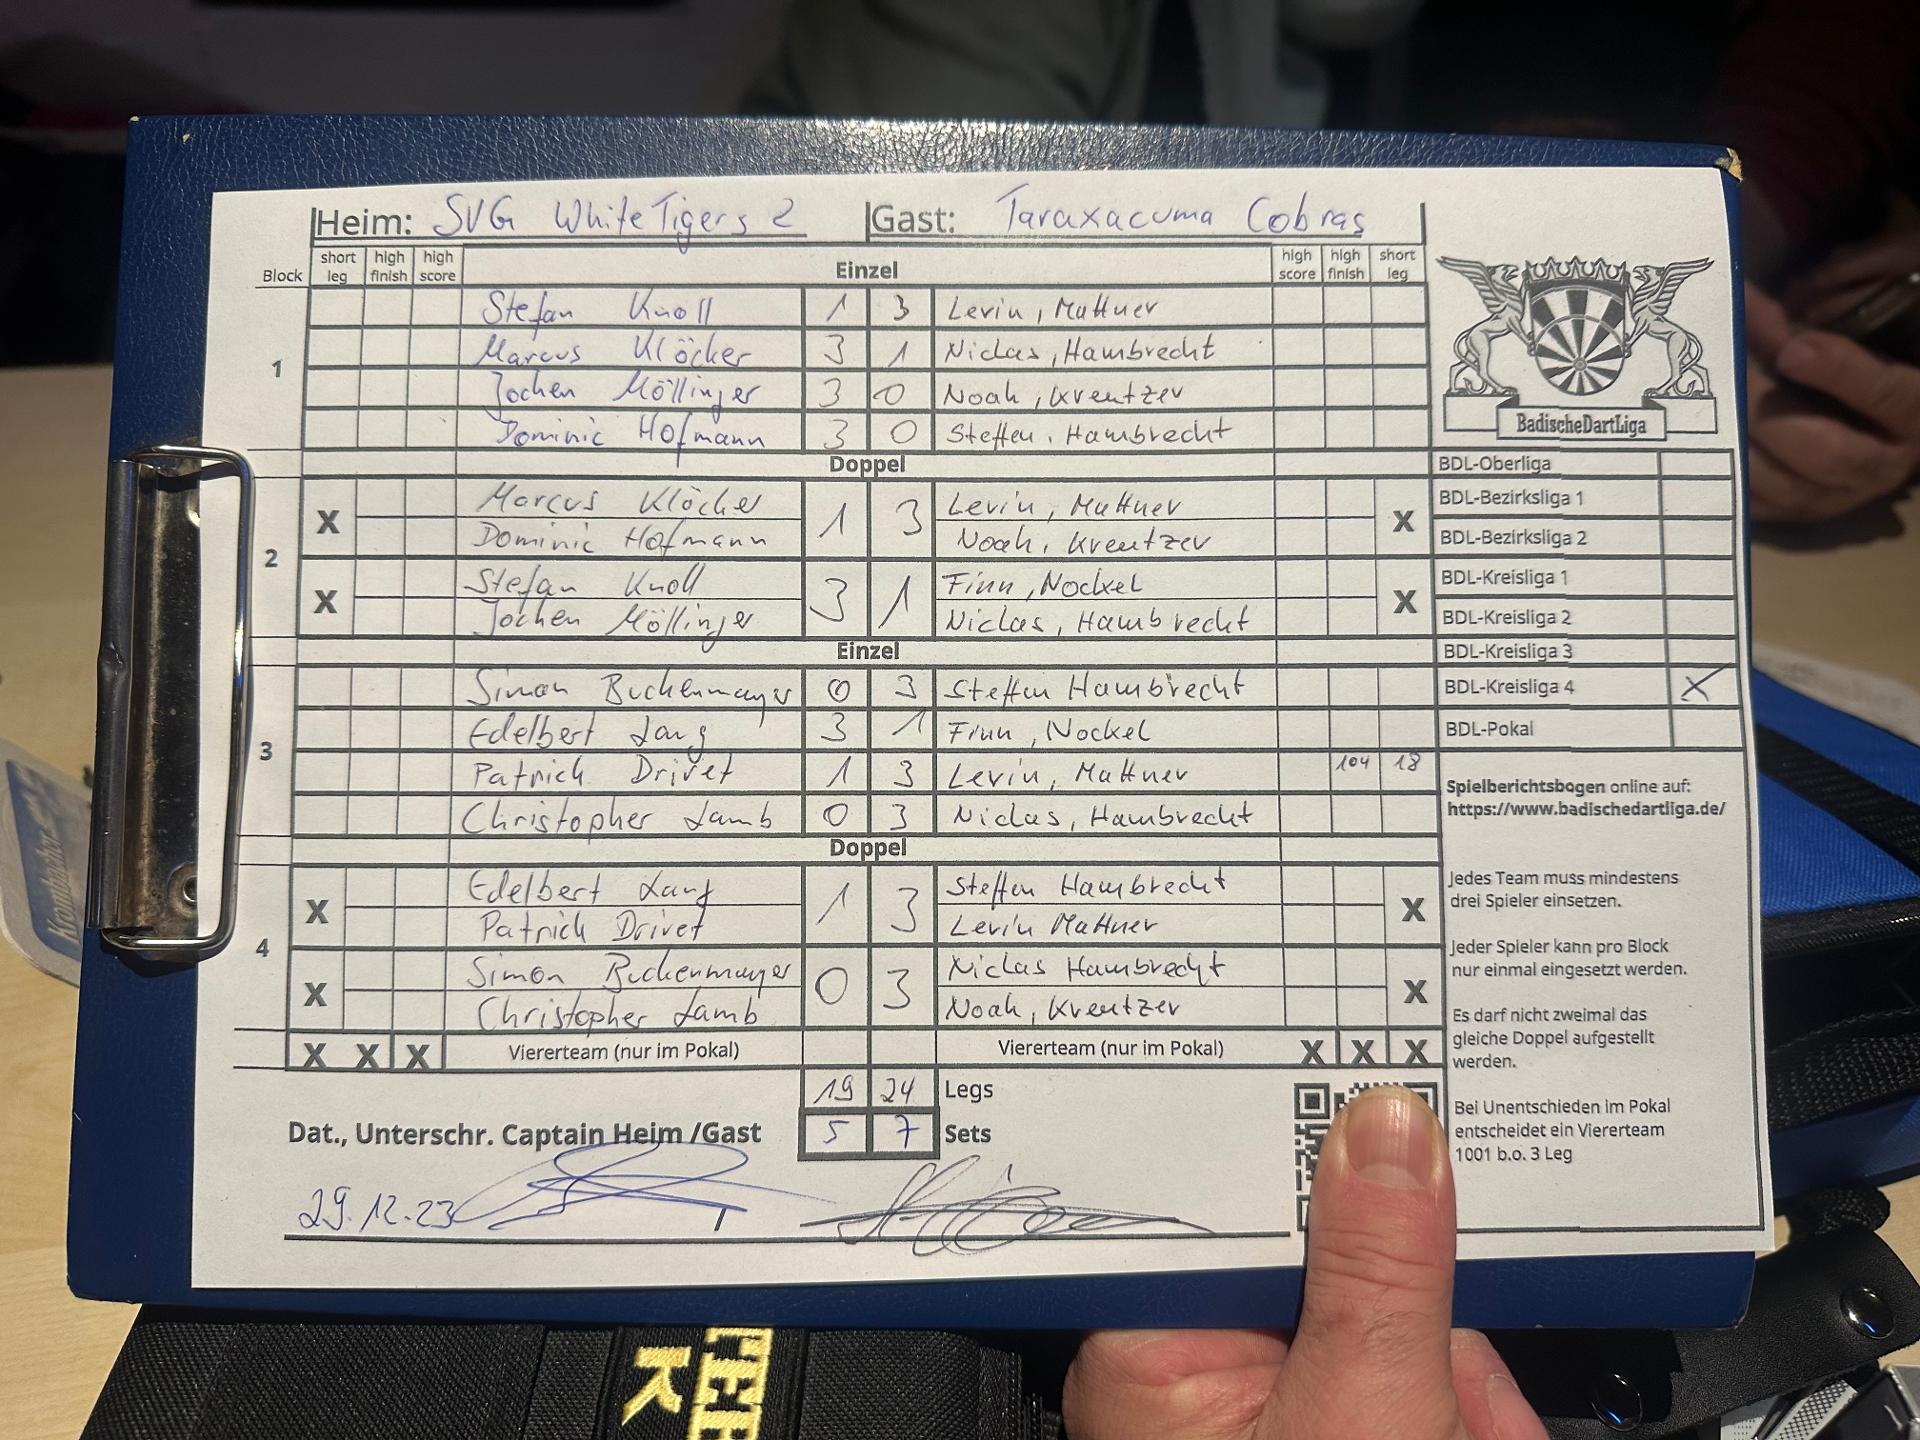 Heim: SVG White Tigers 2 Gast: Taraxacuma Cobras
Block short leg high finish high score Einzel high score high finish short leg
1
Stefan Knoll 1 3 Levin, Mattner
Marcus Klöcker 3 1 Niclas, Hambrecht
Jochen Möllinger 3 0 Noah, Kreutzer
Dominic Hofmann 3 0 Steffen, Hambrecht
Doppel
2
X Marcus Klöcker 1 3 Levin, Mattner X
Dominic Hofmann Noah, Kreutzer
X Stefan Knoll 3 1 Finn, Nockel X
Jochen Möllinger Niclas, Hambrecht
Einzel
3
Simon Buckenmayer 0 3 Steffen Hambrecht
Edelbert Lang 3 1 Finn, Nockel
Patrick Drivet 1 3 Levin, Mattner 104 18
Christopher Lamb 0 3 Niclas, Hambrecht
Doppel
4
X Edelbert Lang 1 3 Steffen Hambrecht X
Patrick Drivet Levin Mattner
X Simon Buckenmayer 0 3 Niclas Hambrecht X
Christopher Lamb Noah, Kreutzer
X X X Viererteam (nur im Pokal) Viererteam (nur im Pokal) X X X
19 24 Legs
Dat., Unterschr. Captain Heim /Gast 5 7 Sets
29.12.23
BadischeDartLiga
BDL-Oberliga
BDL-Bezirksliga 1
BDL-Bezirksliga 2
BDL-Kreisliga 1
BDL-Kreisliga 2
BDL-Kreisliga 3
BDL-Kreisliga 4 X
BDL-Pokal
Spielberichtsbogen online auf:
https://www.badischedartliga.de/
Jedes Team muss mindestens
drei Spieler einsetzen.
Jeder Spieler kann pro Block
nur einmal eingesetzt werden.
Es darf nicht zweimal das
gleiche Doppel aufgestellt
werden.
Bei Unentschieden im Pokal
entscheidet ein Viererteam
1001 b.o. 3 Leg
Krombacher
K